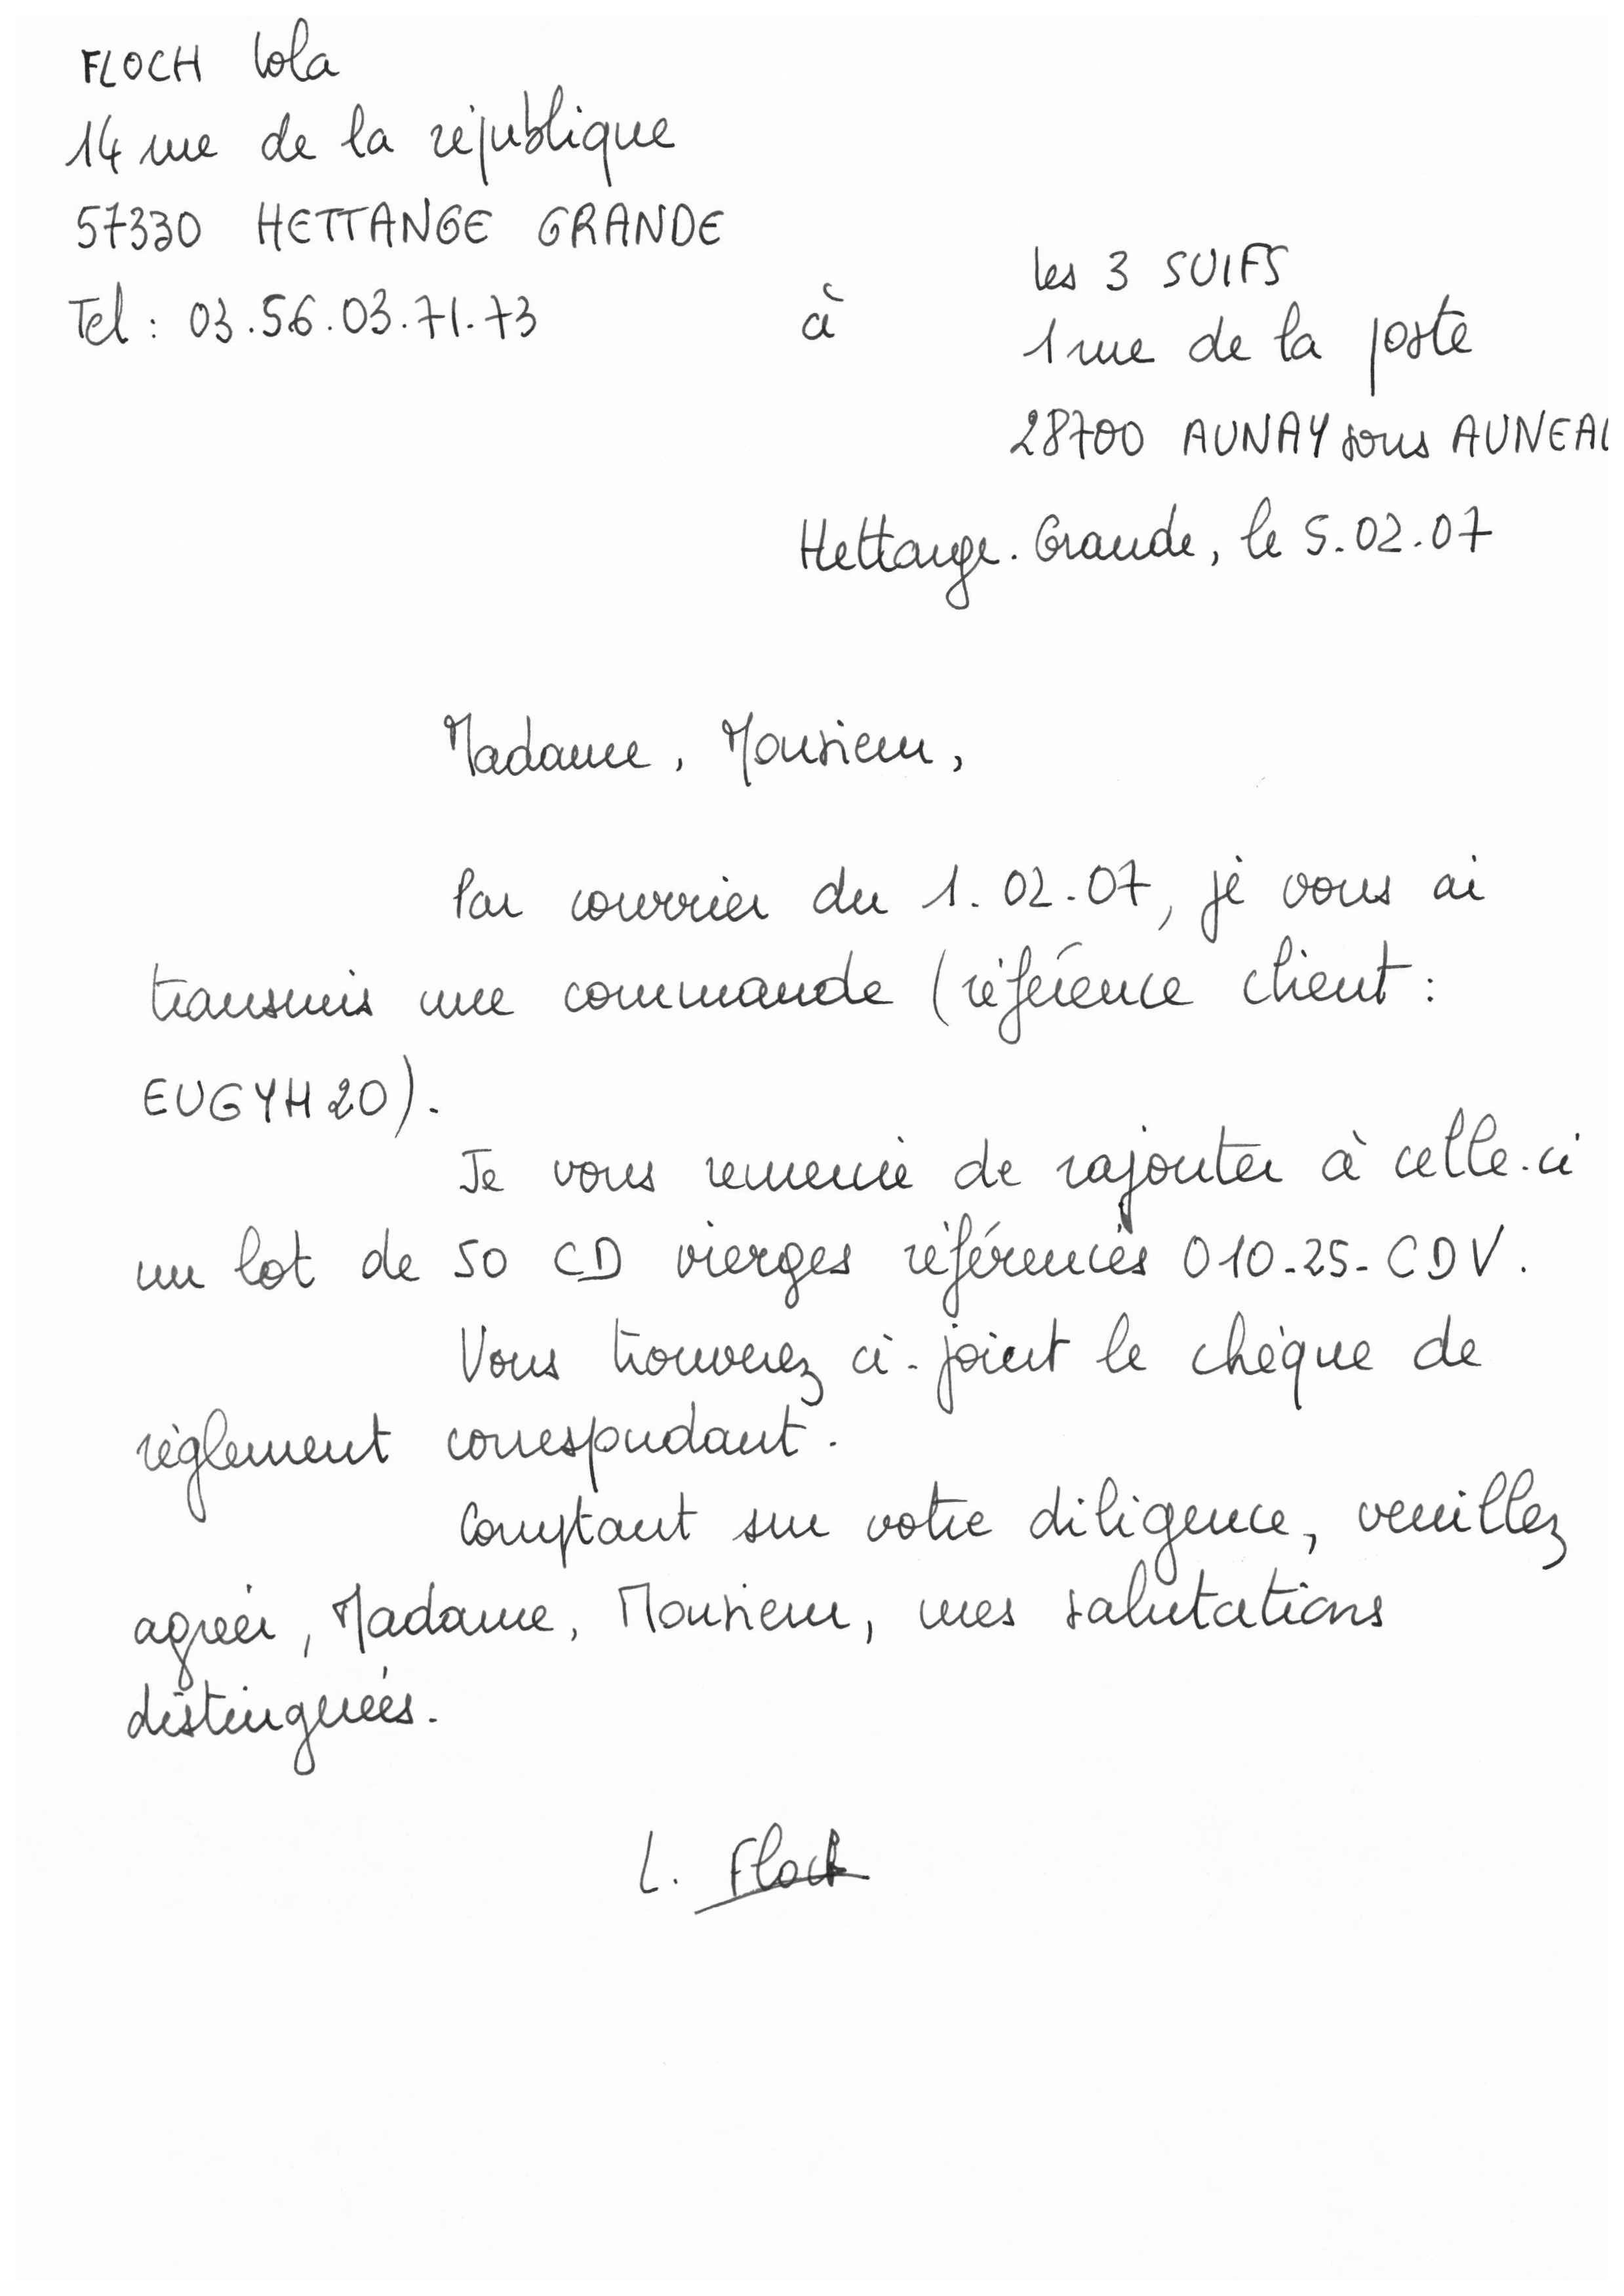 FLOCH Lola
14 rue de la république
57330 HETTANGE GRANDE
Tel : 03.56.03.71.73
à
Les 3 SUIFS
1 rue de la poste
28700 AUNAY sous AUNEAU
Hettange-Grande, le 5.02.07
Madame, Monsieur,
Par courrier du 1.02.07, je vous ai
transmis une commande (référence client :
EUGYH20).
Je vous remercie de rajouter à celle-ci
un lot de 50 CD vierges référencés 010-25-CDV.
Vous trouverez ci-joint le chèque de
règlement correspondant.
Comptant sur votre diligence, veuillez
agréer, Madame, Monsieur, mes salutations
distinguées.
L. Floch